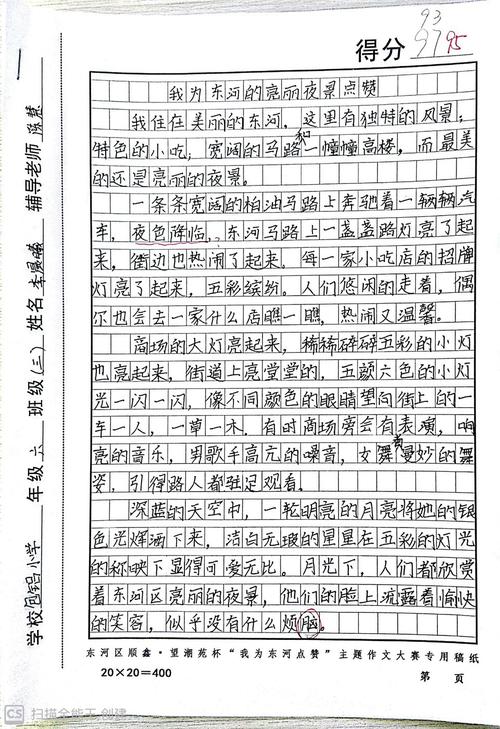 93
97 95
得分
我为东河的亮丽夜景点赞
我住在美丽的东河，这里有独特的风景，
特色的小吃，宽阔的马路和一幢幢高楼，而最美
的还是亮丽的夜景。
一条条宽阔的柏油马路上奔驰着一辆辆汽
车，夜色降临，东河马路上一盏盏路灯亮了起
来，街边也热闹了起来。每一家小吃店的招牌
灯亮了起来，五彩缤纷。人们悠闲的走着，偶
尔也会去一家什么店瞧一瞧，热闹又温馨。
商场的大灯亮起来，稀稀碎碎五彩的小灯
也亮起来，街道上亮堂堂的，五颜六色的小灯
光一闪一闪，像不同颜色的眼睛望向街上的一
车一人，一草一木。有时商场旁会有表演，响
亮的音乐，男歌手高亢的嗓音，女舞员曼妙的舞
姿，引得路人都驻足观看。
深蓝的天空中，一轮明亮的月亮将她的银
色光辉洒下来，洁白无瑕的星星在五彩的灯光
的称映下显得可爱无比。月光下，人们都欣赏
着东河区亮丽的夜景，他们的脸上流露着愉快
的笑容，似乎没有什么烦脑。
东河区顺鑫·望潮苑杯“我为东河点赞”主题作文大赛专用稿纸
20×20=400
第 页
学校包铝小学 年级六 班级(三) 姓名李 辅导老师 慧
CS 扫描全能王 创建